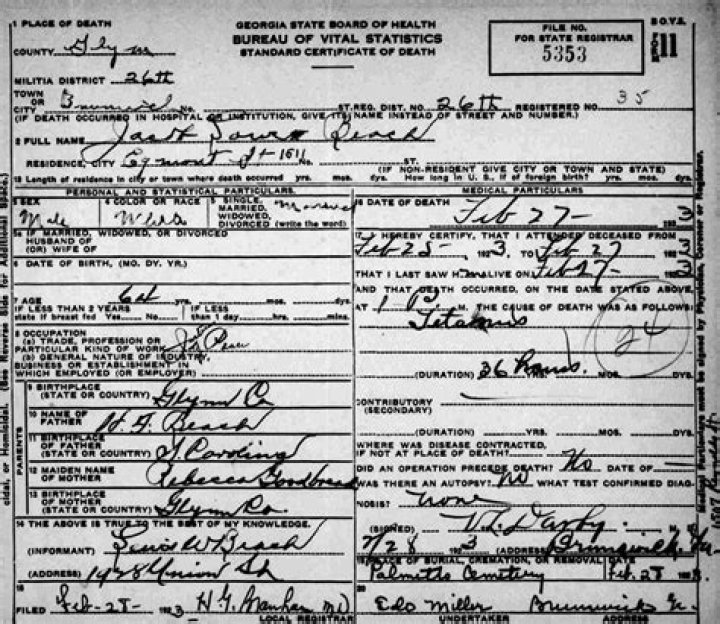 1 PLACE OF DEATH
COUNTY Glynn
MILITIA DISTRICT 26th
TOWN OR CITY Brunswick No.
GEORGIA STATE BOARD OF HEALTH
BUREAU OF VITAL STATISTICS
STANDARD CERTIFICATE OF DEATH
FILE NO.
FOR STATE REGISTRAR
5353
B O.V.S.
FORM 11
ST. REG. DIST. NO. 26th REGISTERED NO. 35
(IF DEATH OCCURRED IN HOSPITAL OR INSTITUTION, GIVE ITS NAME INSTEAD OF STREET AND NUMBER.)
2 FULL NAME Beach
RESIDENCE, CITY Egmont St 1611 No. ST.
(IF NON-RESIDENT GIVE CITY OR TOWN AND STATE)
13 Length of residence in city or town where death occurred yrs. mos. dys. How long in U. S., if of foreign birth? yrs. mos. dys.
PERSONAL AND STATISTICAL PARTICULARS
3 SEX Male
4 COLOR OR RACE White
5 SINGLE, MARRIED, WIDOWED, DIVORCED (write the word) Married
5a IF MARRIED, WIDOWED, OR DIVORCED
HUSBAND OF
(OR) WIFE OF
6 DATE OF BIRTH, (MO. DY. YR.)
7 AGE 64 yrs. mos. dys.
IF LESS THAN 2 YEARS
state if breast fed Yes No
IF LESS
than 1 day hrs. mins.
8 OCCUPATION
(a) TRADE, PROFESSION OR
PARTICULAR KIND OF WORK
(b) GENERAL NATURE OF INDUSTRY,
BUSINESS OR ESTABLISHMENT IN
WHICH EMPLOYED (OR EMPLOYER)
PARENTS
9 BIRTHPLACE
(STATE OR COUNTRY) Glynn Co
10 NAME OF
FATHER Beach
11 BIRTHPLACE
OF FATHER
(STATE OR COUNTRY) Carolina
12 MAIDEN NAME
OF MOTHER Rebecca Goodbread
13 BIRTHPLACE
OF MOTHER
(STATE OR COUNTRY) Glynn Co.
14 THE ABOVE IS TRUE TO THE BEST OF MY KNOWLEDGE.
(INFORMANT) Lewis W Beach
(ADDRESS) 1928 Union St
15
FILED Feb-28- 1923 H. G. M D
LOCAL REGISTRAR
MEDICAL PARTICULARS
16 DATE OF DEATH Feb 27- 1923
17 I HEREBY CERTIFY, THAT I ATTENDED DECEASED FROM
Feb 25- 1923, TO Feb 27 1923
THAT I LAST SAW H im ALIVE ON Feb 27- 1923
AND THAT DEATH OCCURRED, ON THE DATE STATED ABOVE,
AT 1-P M. THE CAUSE OF DEATH WAS AS FOLLOWS:
Tetanus
24
(DURATION) 36 hours. MOS. DYS.
CONTRIBUTORY
(SECONDARY)
(DURATION) YRS. MOS. DYS.
WHERE WAS DISEASE CONTRACTED,
IF NOT AT PLACE OF DEATH?
DID AN OPERATION PRECEDE DEATH? No DATE OF
WAS THERE AN AUTOPSY? No WHAT TEST CONFIRMED DIAG-
NOSIS? none
(SIGNED) Darby M. D.
2/28 1923 (ADDRESS) Brunswick, Ga.
19 PLACE OF BURIAL, CREMATION, OR REMOVAL DATE
Palmetto Cemetery Feb. 28 1923
20
Edo Miller Brunswick Ga.
UNDERTAKER ADDRESS